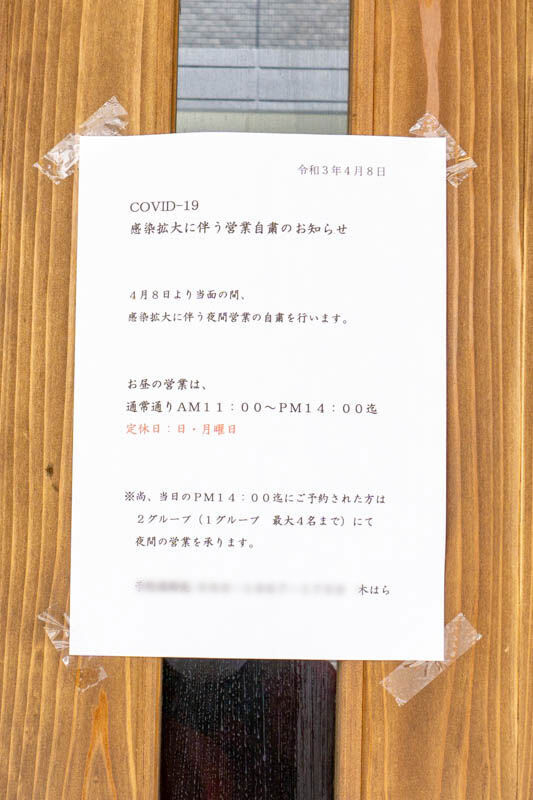 令和３年４月８日
COVID-19
感染拡大に伴う営業自粛のお知らせ
４月８日より当面の間、
感染拡大に伴う夜間営業の自粛を行います。
お昼の営業は、
通常通りＡＭ１１：００～ＰＭ１４：００迄
定休日：日・月曜日
※尚、当日のＰＭ１４：００迄にご予約された方は
２グループ（１グループ　最大４名まで）にて
夜間の営業を承ります。
木はら